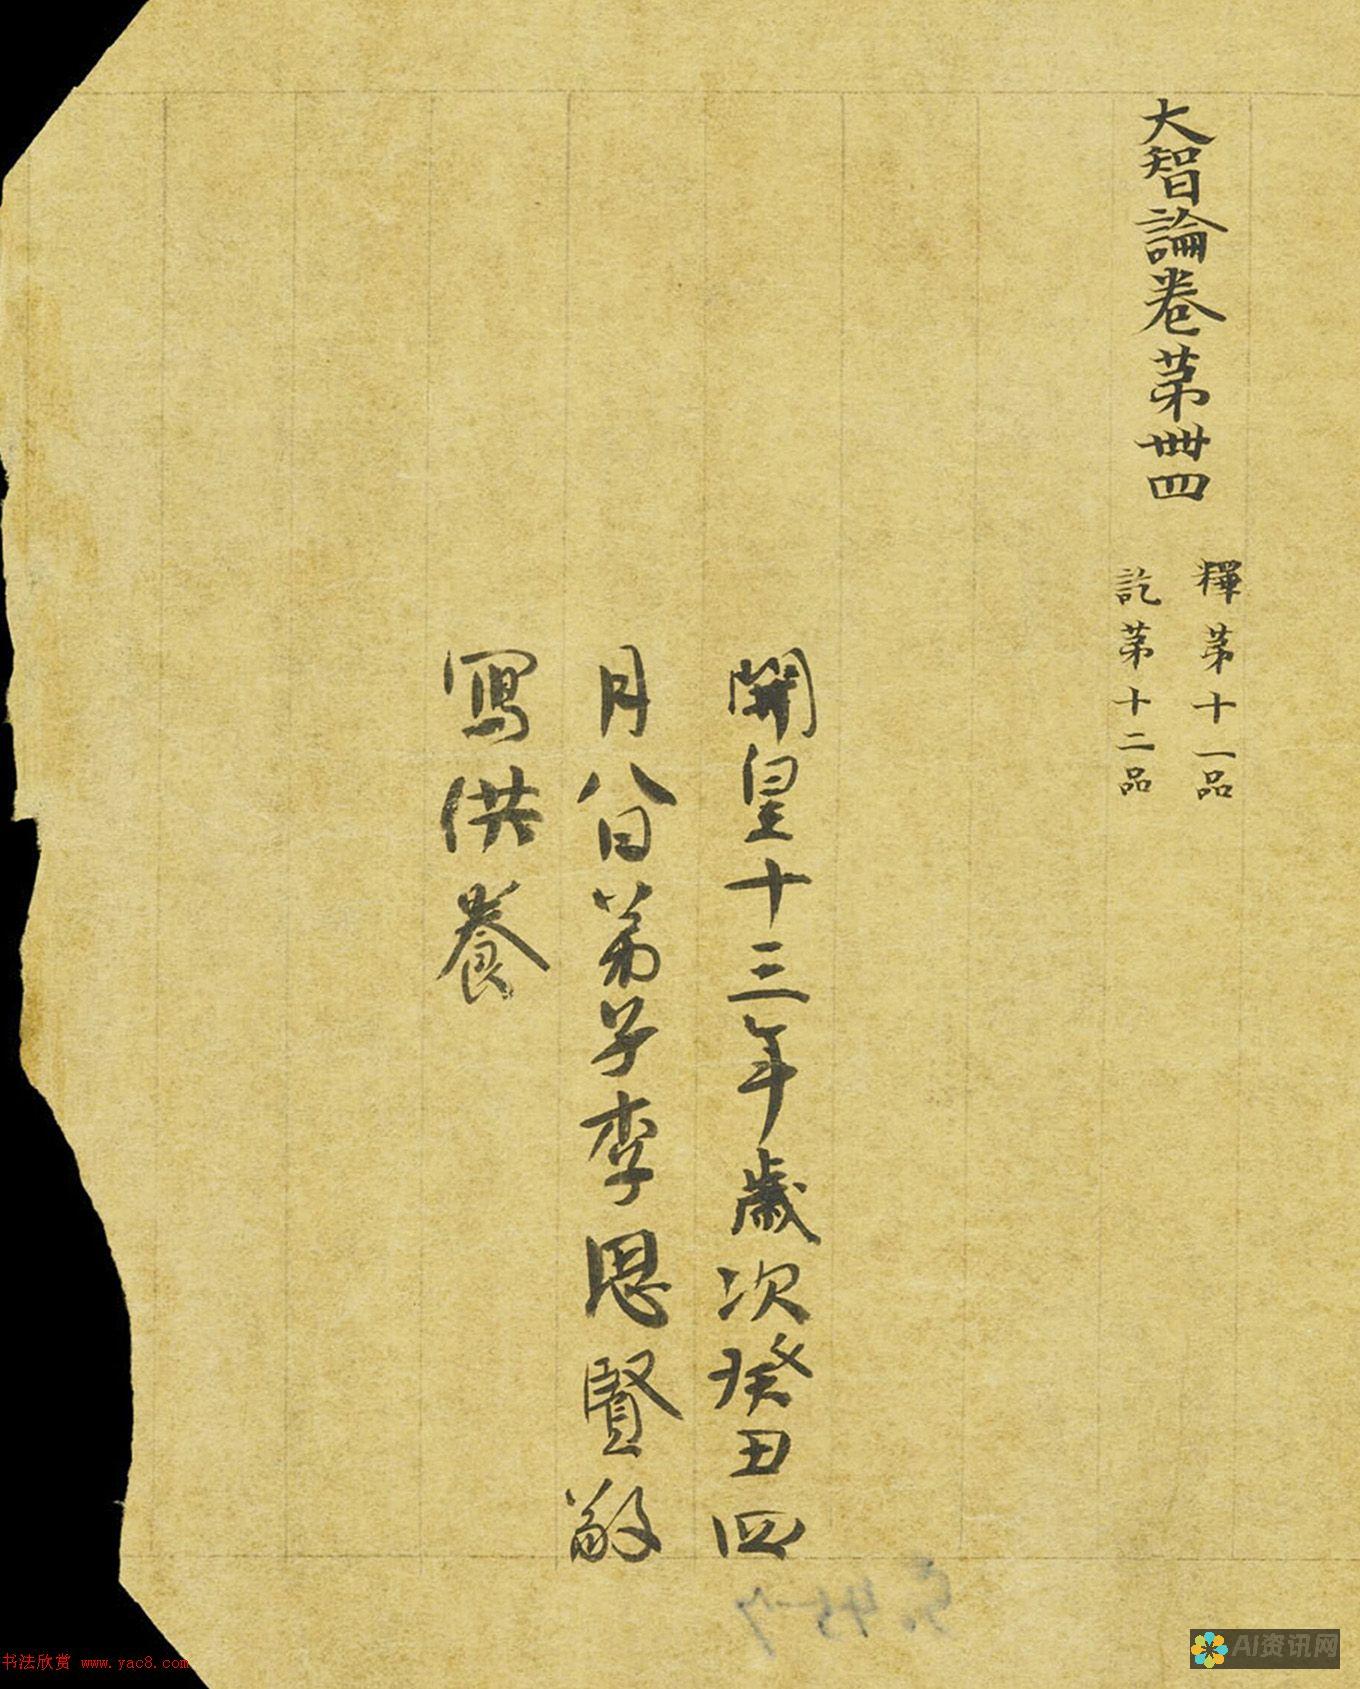 大智論卷第卌四
釋第十一品
訖第十二品
開皇十三年歲次癸丑四
月八日弟子李思賢敬
寫供養
S. 457
书法欣赏 www.yac8.com
AI资讯网